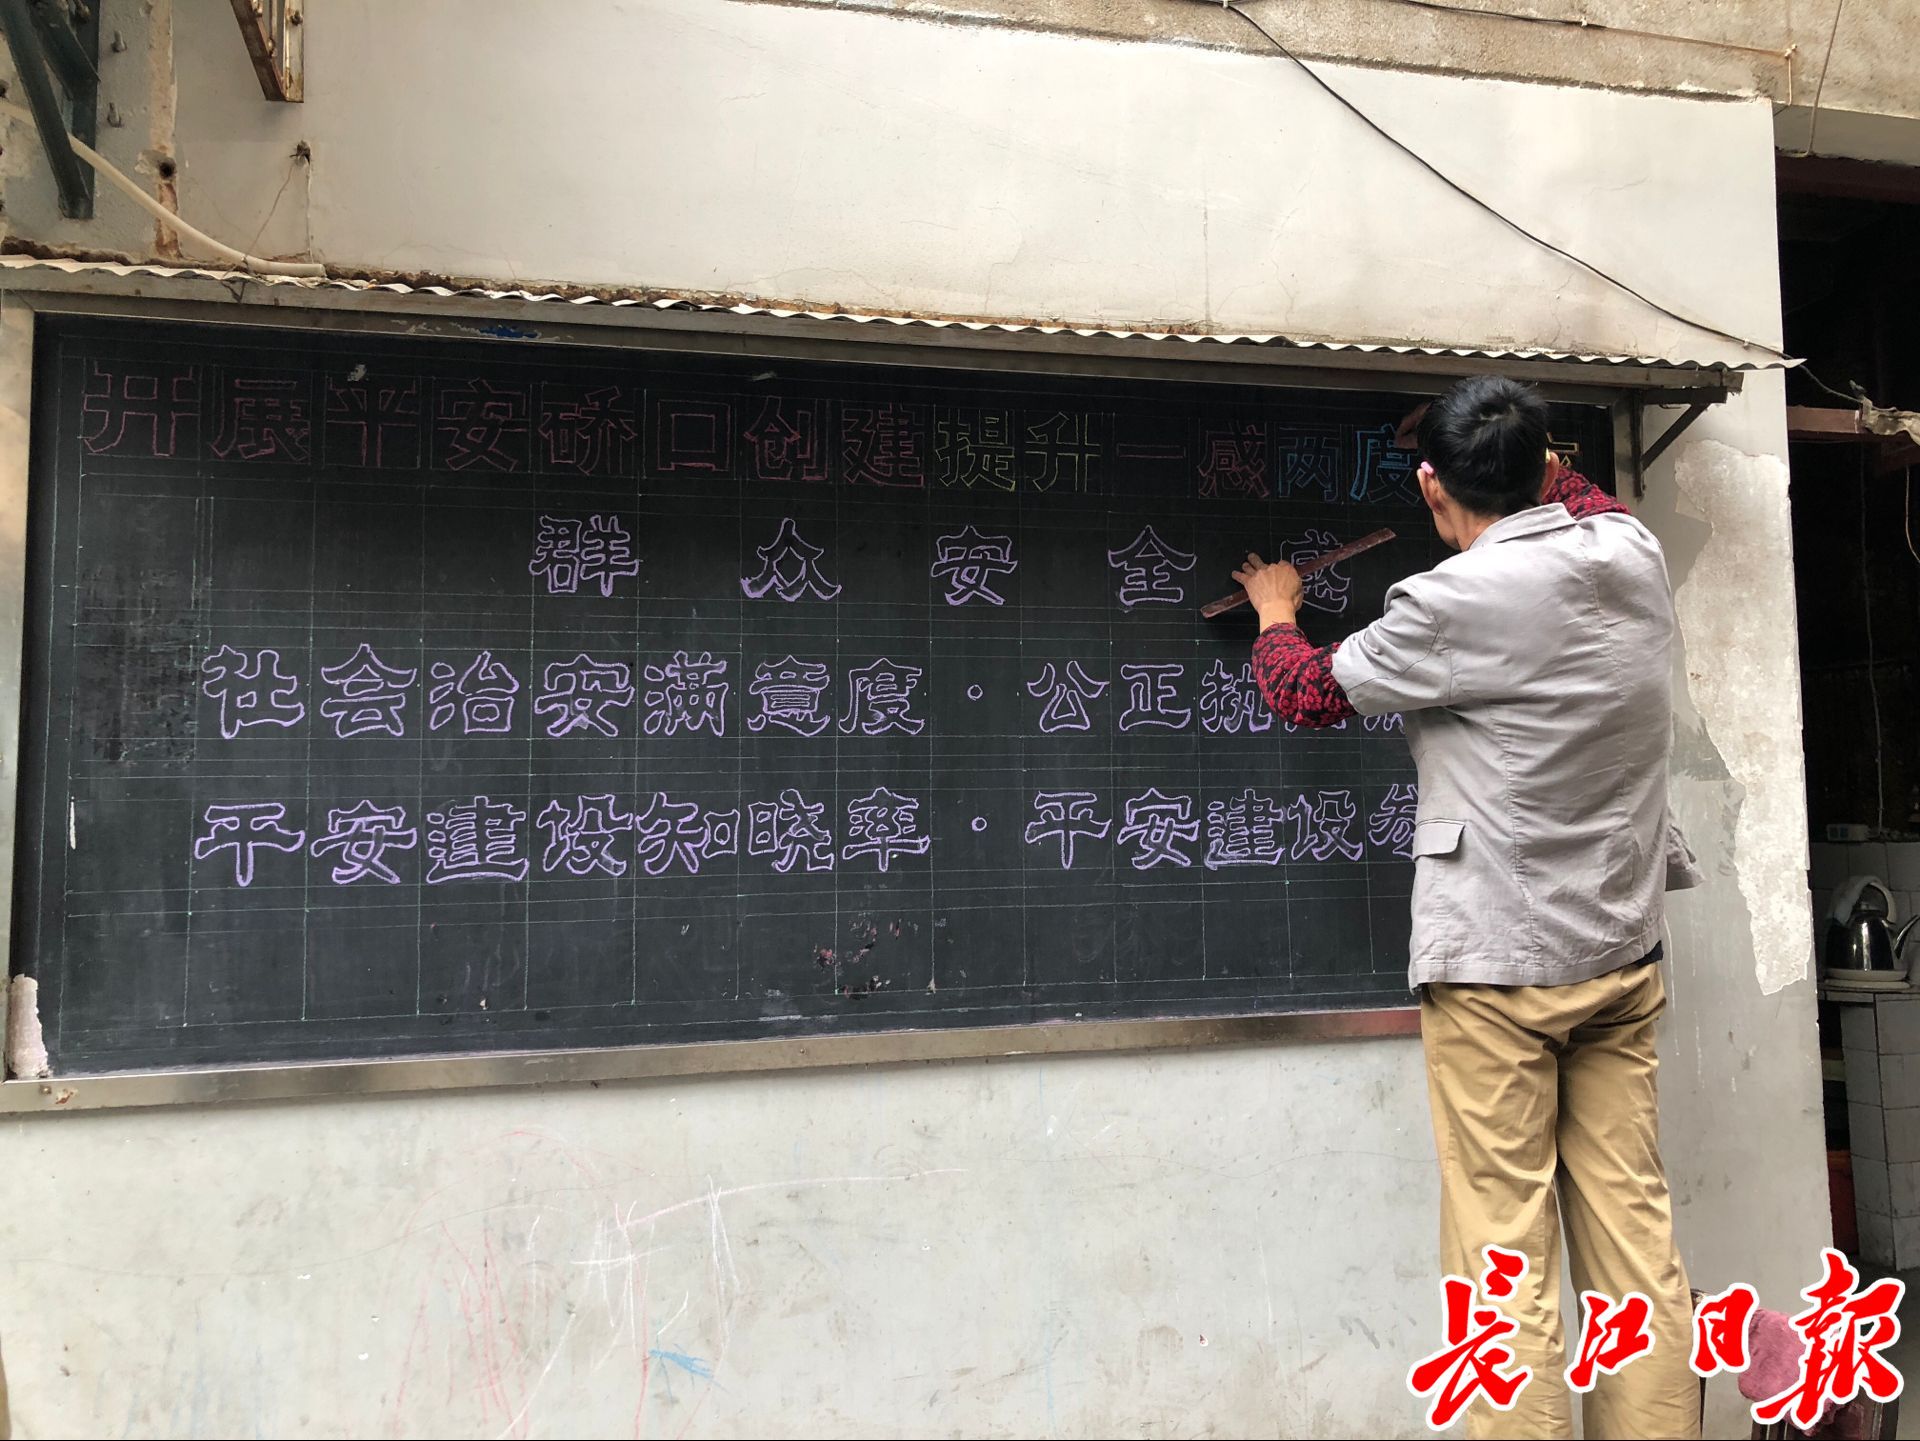 开展平安硚口创建提升一感两度
群众安全感
社会治安满意度·公正执
平安建设知晓率·平安建设参
长江日报